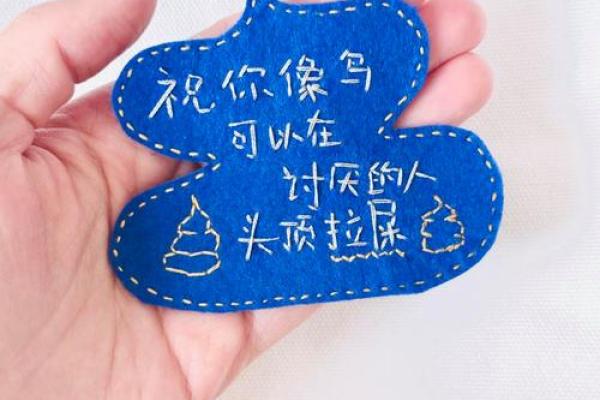 祝你像鸟
可以在
讨厌的人
头顶拉屎